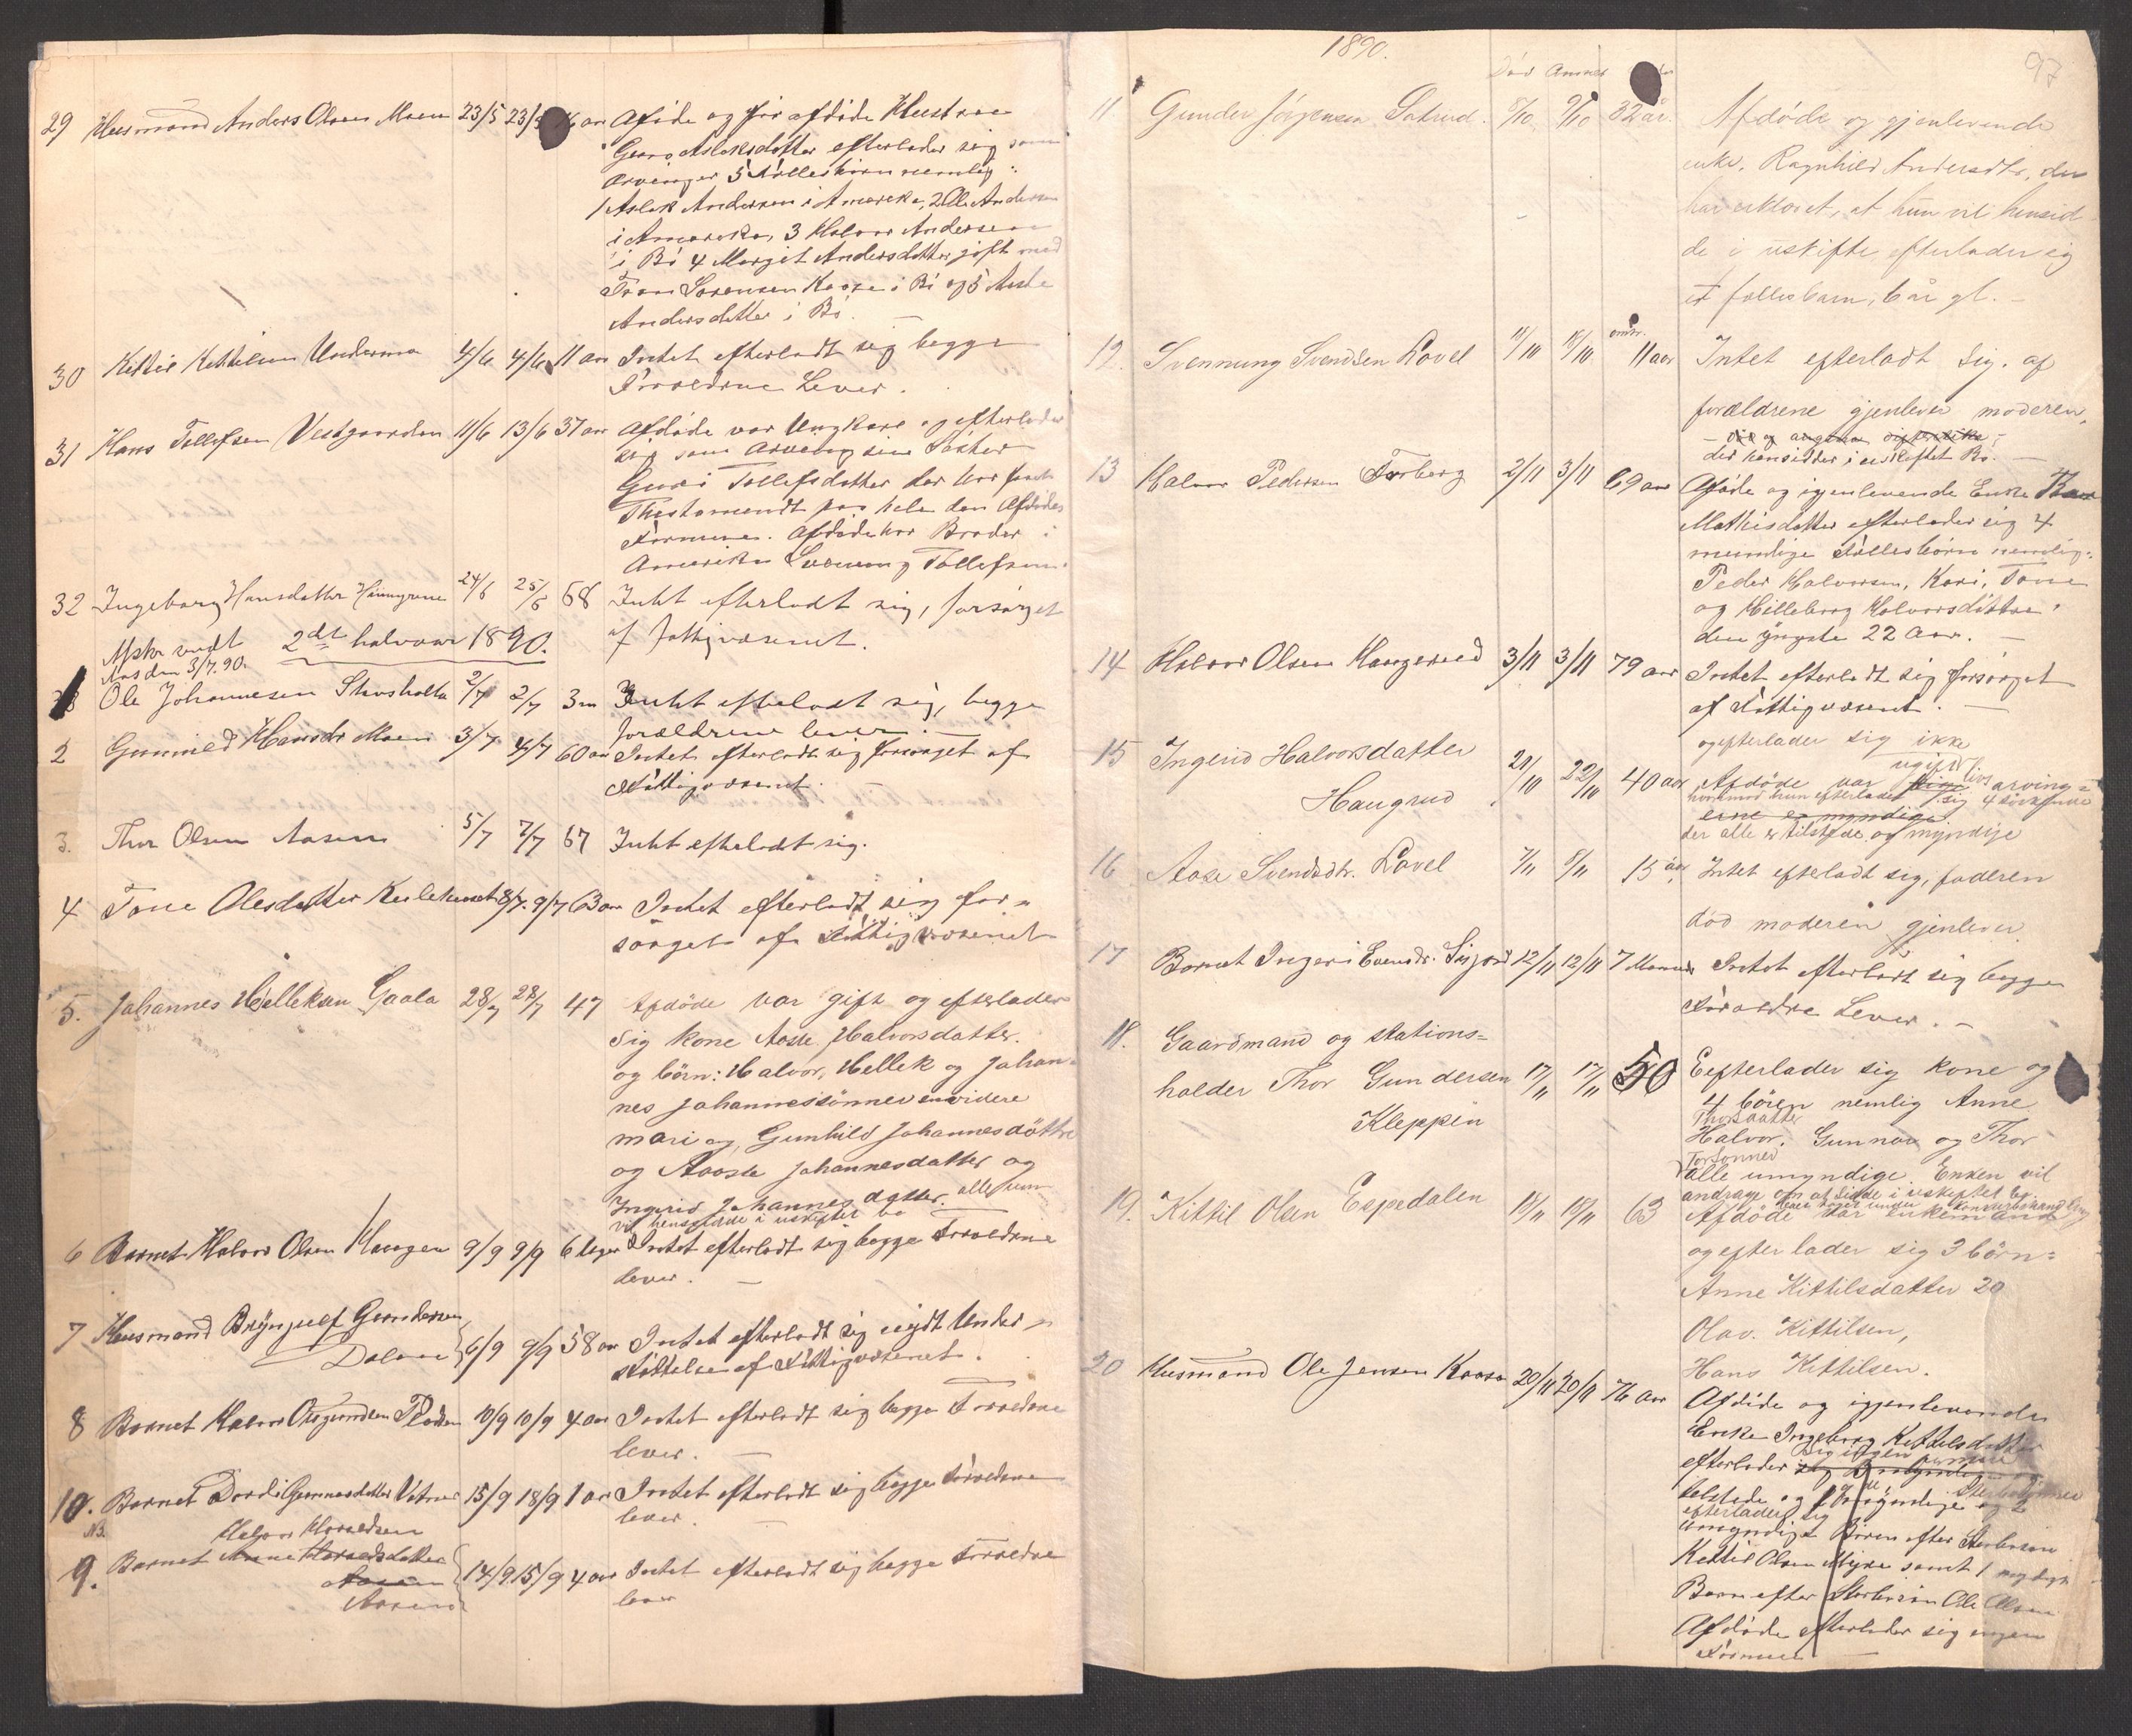 29 Husmand Anders Olsen Moen 23/5 23/5 aar Afdøde og før afdøde Hustrue
Aslaksdatter efterlader sig som
Arvinger 5 Fællesbørn nemlig:
1 Aslak Andersen i Amerika, 2 Ole Andersen
i Amerika, 3 Halvor Andersen
i Bø 4 Margit Andersdatter, gift med
Sørensen Kaasa i Bø og 5 Aaste
Andersdatter i Bø. —
30 Kittil Kittilsen 4/6 4/6 11 aar Intet efterladt sig begge
Forældrene Lever.
31 Hans Tollefsen Vestgaarden 11/6 13/6 37 aar Afdøde var Ungkare og efterlader
sig som Arving sin Søster
Guro Tollefsdatter der har faaet
Thestamendt paa hele den Afdødes
Formue. Afdøde har Broder i
Amerika Tollefsen.
32 Ingeborg Hansdatter 24/6 25/6 68 Intet efterladt sig, forsørget
af fattigvæsenet.
Afskr. sendt 2det halvaar 1890.
den 3/7.90.
1 Ole Johannesen Stavsholta 2/7 2/7 3 m Intet efterladt sig, begge
forældrene lever. —
2 Gunnild Hansdr Moen 3/7 4/7 60 aar Intet efterladt sig forsørget af
Fattigvæsenet. —
3. Thor Olsen Aasen 5/7 7/7 67 Intet efterladt sig.
4 Tone Olesdatter 8/7. 9/7 63 aar Intet efterladt sig for=
sørget af Fattigvæsenet
5. Johannes Helleksen Gaala 28/7 28/7 47 Afdøde var gift og efterlader
sig kone Aaste Halvorsdatter.
og børn: Halvor, Hellek og Johan=
nes Johannessønner envidere
mari og Gunhild Johannesdøttre
og Aaste Johannesdatter og
Ingerid Johannesdatter. alle um
vil hensidde i uskiftet bo
6 Barnet Halvor Olsen Haugen 9/9 9/9 6 Uger Intet efterladt sig begge Forældrene
lever. —
7 Husmand Brynjulf Gundersen
Dalen 6/9 9/9 58 aar Intet efterladt sig nydt Under=
støttelse af Fattigvæsenet.
8 Barnet Halvor Asgrimdsen 10/9 10/9 4 aar Intet efterladt sig begge Forældrene
lever. —
10. Barnet Dordi Gunnesdatter 15/9 18/9 1 aar Intet efterladt sig begge Forældrene
lever. —
NB. Halvor Haraldsen
9. Barnet Anne Haraldsdatter
Aasen
Aasen 14/9 15/9 4 aar Intet efterladt sig begge Forældre
lever
1890. 97
Død Anmel
11 Gunder Jørgensen Satrud. 8/10 9/10 32 år. Afdøde og gjenlevende
enke, Ragnhild Andersdtr, der
har erklæret, at hun vil hensid
de i uskifte efterlader sig
et fællesbarn, 6 år gl. —
12. Svennung Svendsen Lovel 11/10 18/10 omtr. 11 aar Intet efterladt sig. af
forældrene gjenlever moderen,
der hensidder i uskiftet Bo. —
13 Halvor Pedersen Forberg 2/11 3/11 69 aar Afdøde og igjenlevende Enke
Mathisdatter efterlader sig 4
myndige Fællesbørn nemlig:
Peder Halvorsen, Kari, Tone
og Hilleborg Halvorsdøttre,
den yngste 22 Aar. —
14 Halvor Olsen Haugerud 3/11 3/11 79 aar Intet efterladt sig forsørget
af Fattigvæsenet. —
og efterlader sig ikke
15 Ingerid Halvorsdatter
Haugrud 21/10 22/10 40 aar Afdøde var ugift livsarving=
hvorimod hun efterlader sig 4 søskende
erne er myndige
der alle er tilstede og myndige
16 Aase Svendsdtr. Lovel 7/11 8/11 15 år, Intet efterladt sig, faderen
død moderen gjenlever.
17 Barnet Ingeri Evensdr. 12/11 12/11 7 Maaneder Intet efterladt sig begge
Forældre Lever. —
18. Gaardmand og stations=
holder Thor Gundersen
Kleppen 17/11 17/11 50 Eefterlader sig kone og
4 børen nemlig Anne
Thorsdatter
Halvor. Gunnar og Thor
Torsønner
alle umyndige. Enken vil
andrage om at sidde i uskiftet bo
19. Kittil Olsen Espedalen 18/11 18/11 63 Afdøde var enkemand
og efterlader sig 3 børn=
Anne Kittilsdatter 20
Olav. Kittilsen,
Hans Kittilsen.
20 Husmand Ole Jensen Kaasa 20/11 20/11 76 aar Afdøde og igjenlevende
Enke Ingeborg Kittilsdatter
efterlader sig ingen
tilstede og
efterlader sig
umyndige Børn efter Sterbsøn
Kittil Olsen samt 1 myndigt
Barn efter Sterbsøn Ole Olsen
Afdøde efterlader sig ingen
Formue —